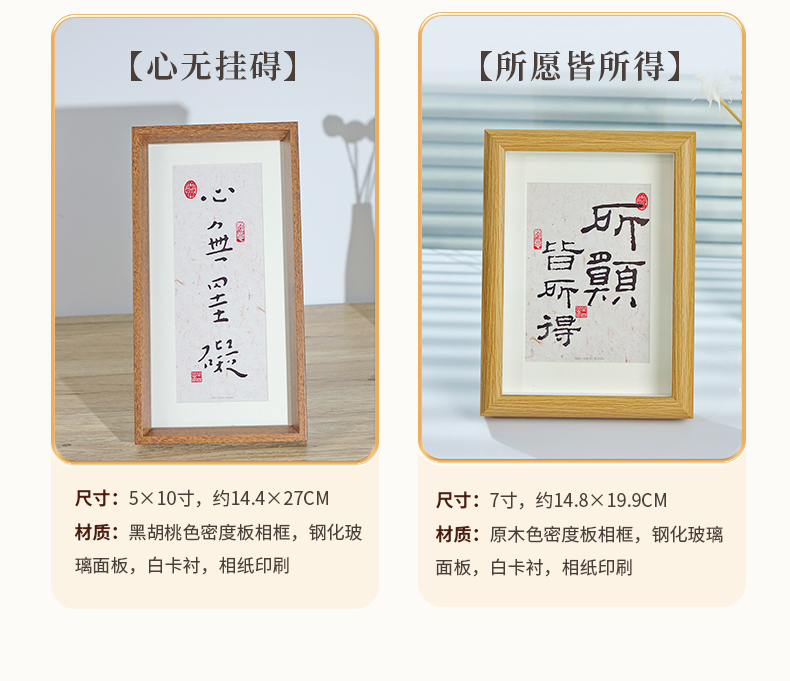 【心无挂碍】
心
無
罣
礙
尺寸：5×10寸，约14.4×27CM
材质：黑胡桃色密度板相框，钢化玻
璃面板，白卡衬，相纸印刷
【所愿皆所得】
所
願
皆
所
得
尺寸：7寸，约14.8×19.9CM
材质：原木色密度板相框，钢化玻璃
面板，白卡衬，相纸印刷